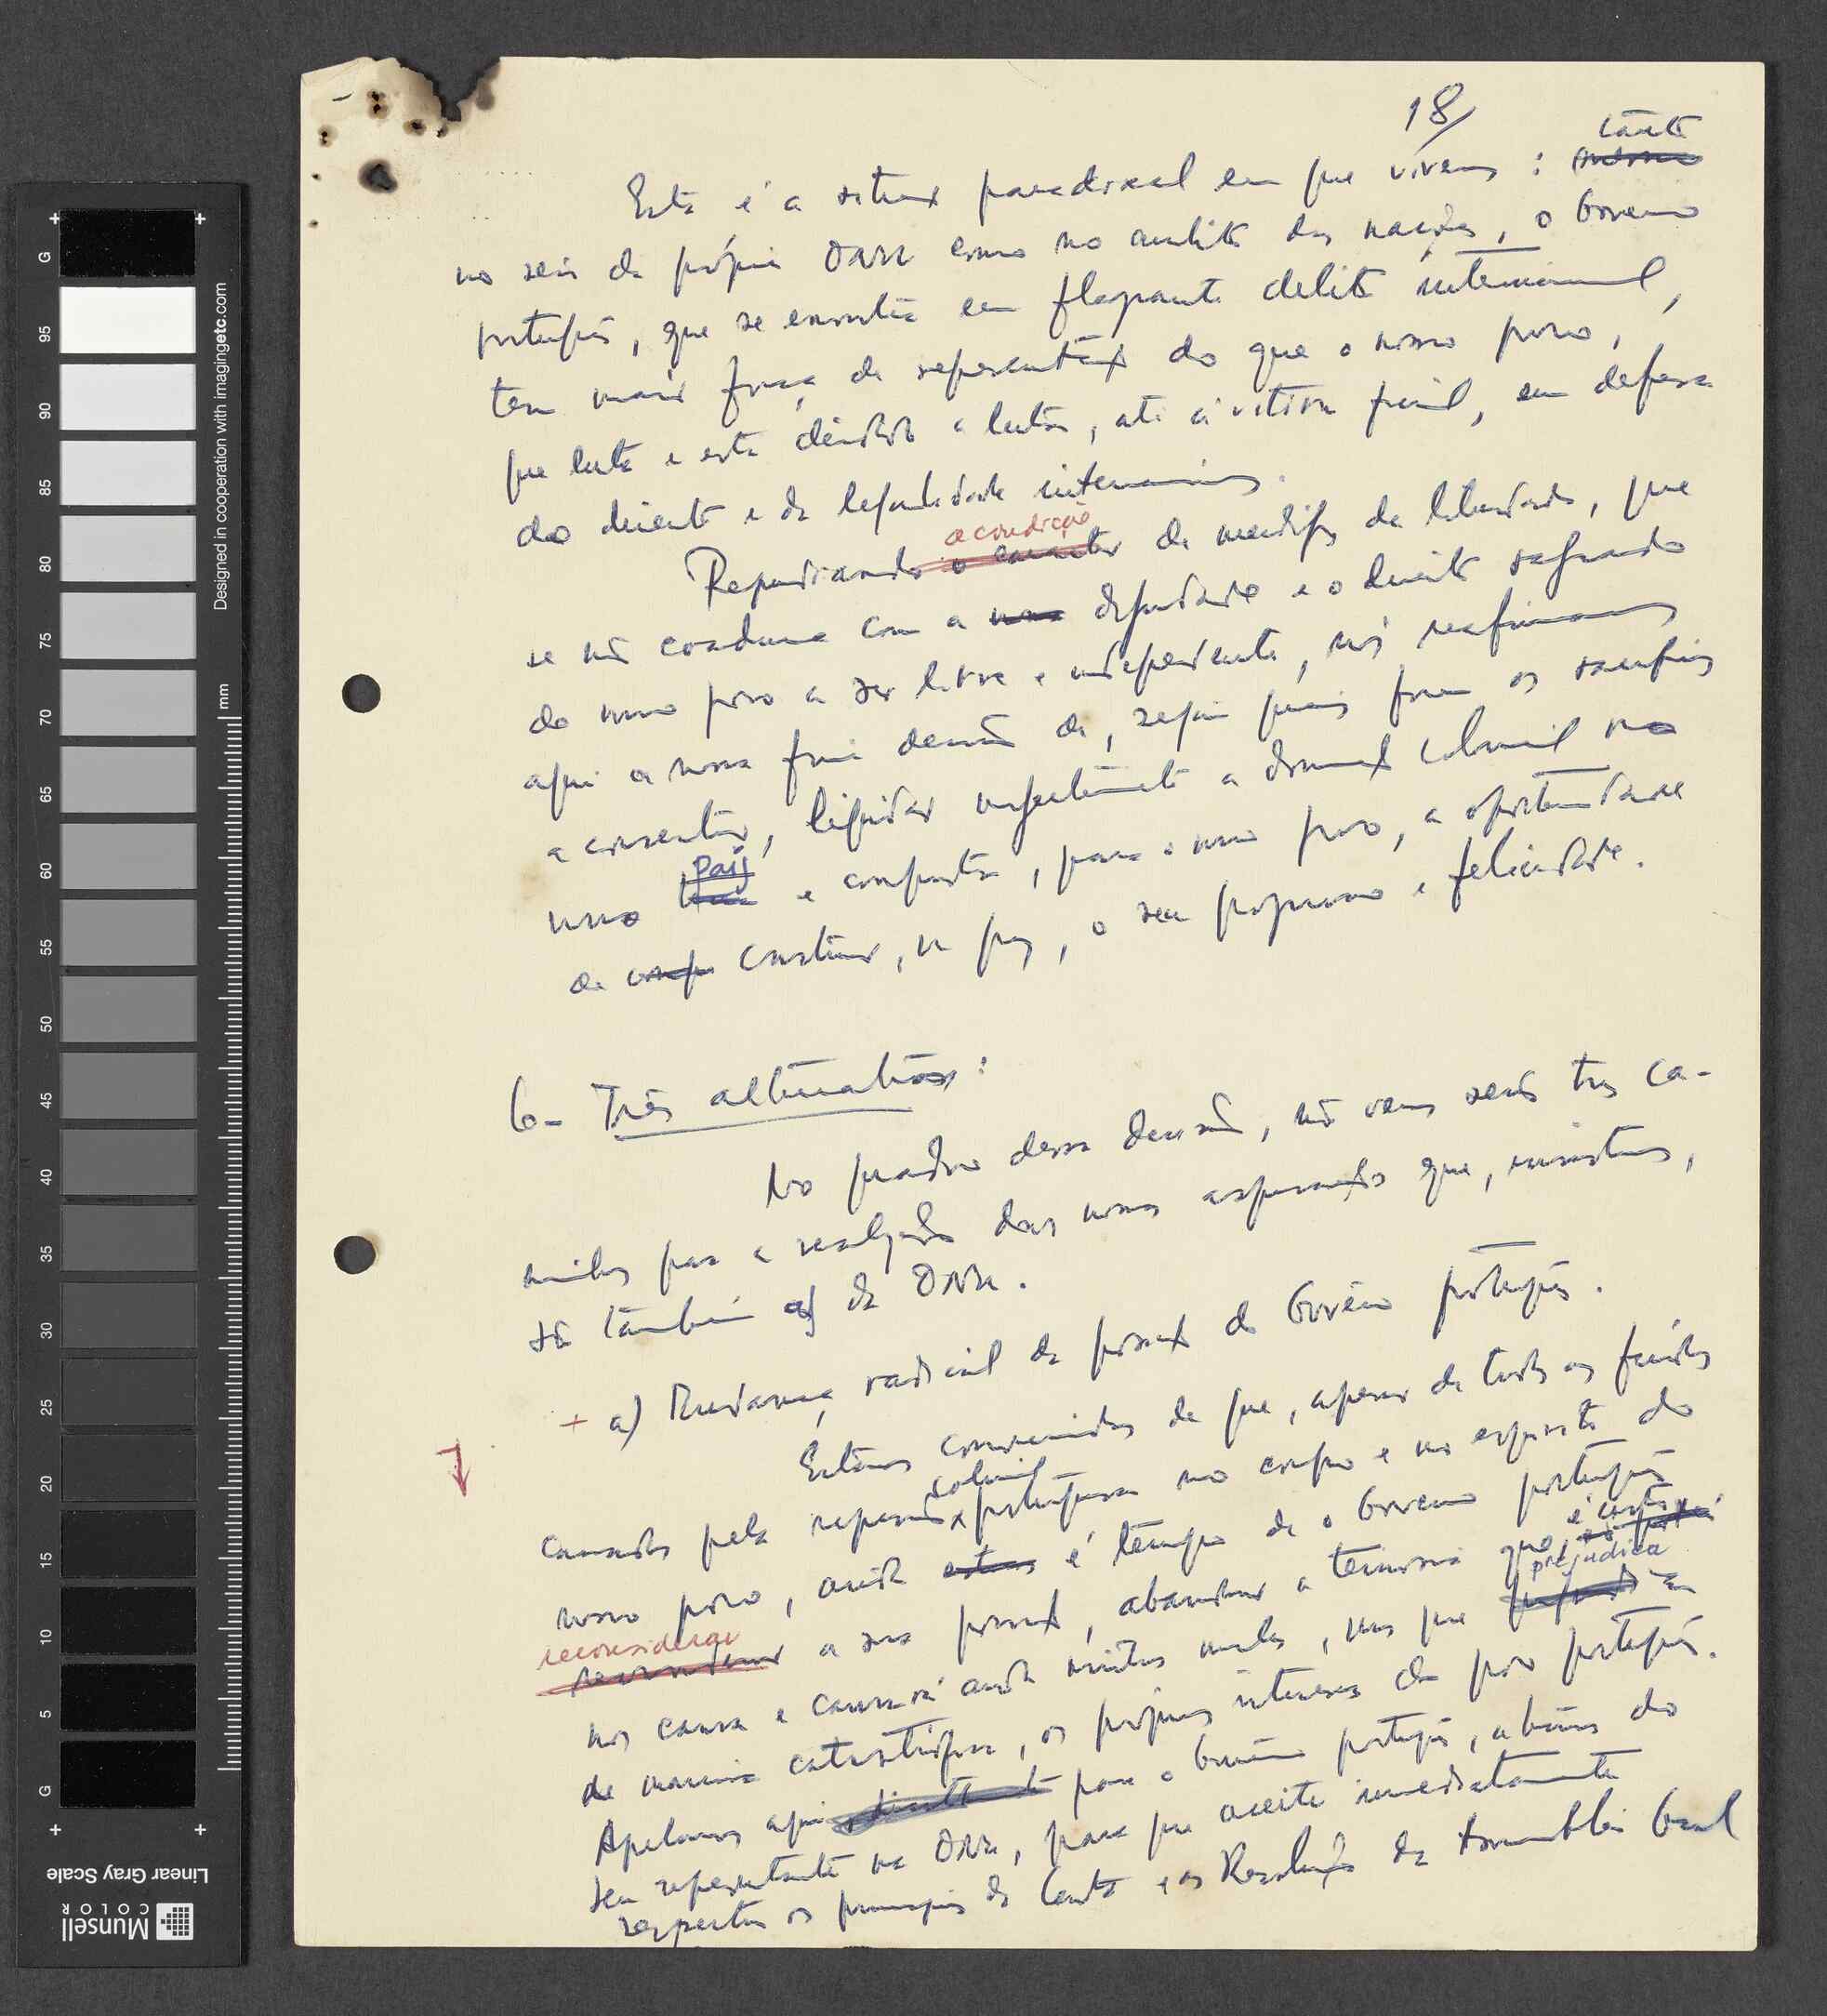 18/
Esta é a situação paradoxal em que vivemos: tanto
no seio da própria ONU como no âmbito das nações, o Governo
português, que se encontra em flagrante delito internacional,
tem mais força de representação do que o nosso povo,
que luta e está decidido a lutar, até à vitória final, em defesa
do direito e da legalidade internacionais.
Repudiando o caracter a condição de mendigos da liberdade, que
se não coaduna com a dignidade e o direito sagrado
do nosso povo a ser livre e independente, nós reafirmamos
aqui a nossa firme decisão de, sejam quais forem os sacrifícios
a consentir, liquidar urgentemente a dominação colonial no
nosso País e conquistar, para o nosso povo, a oportunidade
de construir, na paz, o seu progresso e felicidade.
6- Três alternativas:
No quadro dessa decisão, não vemos senão tres ca-
minhos para a realização das nossas aspirações que, insistimos,
são também as da ONU.
+ a) Mudança radical da posição do Governo português.
Estamos convencidos de que, apesar de todos os
causados pela repressão colonial portuguesa no corpo e no espírito do
nosso povo, ainda é tempo de o Governo português
reconsiderar a sua posição, abandonar a teimosia que, é certo,
nos causa e causará ainda muitos males, mas que prejudica
de maneira catastrófica, os próprios interesses do povo português.
Apelamos aqui para o Governo português, através do
seu representante na ONU, para que aceite imediatamente
respeitar os princípios da Carta e as Resoluções da Assembleia Geral
G
95
90
85
80
75
70
65
60
55
50
45
40
35
30
25
20
15
10
5
G
mm
Designed in cooperation with imagingetc.com
Linear Gray Scale
Munsell
COLOR